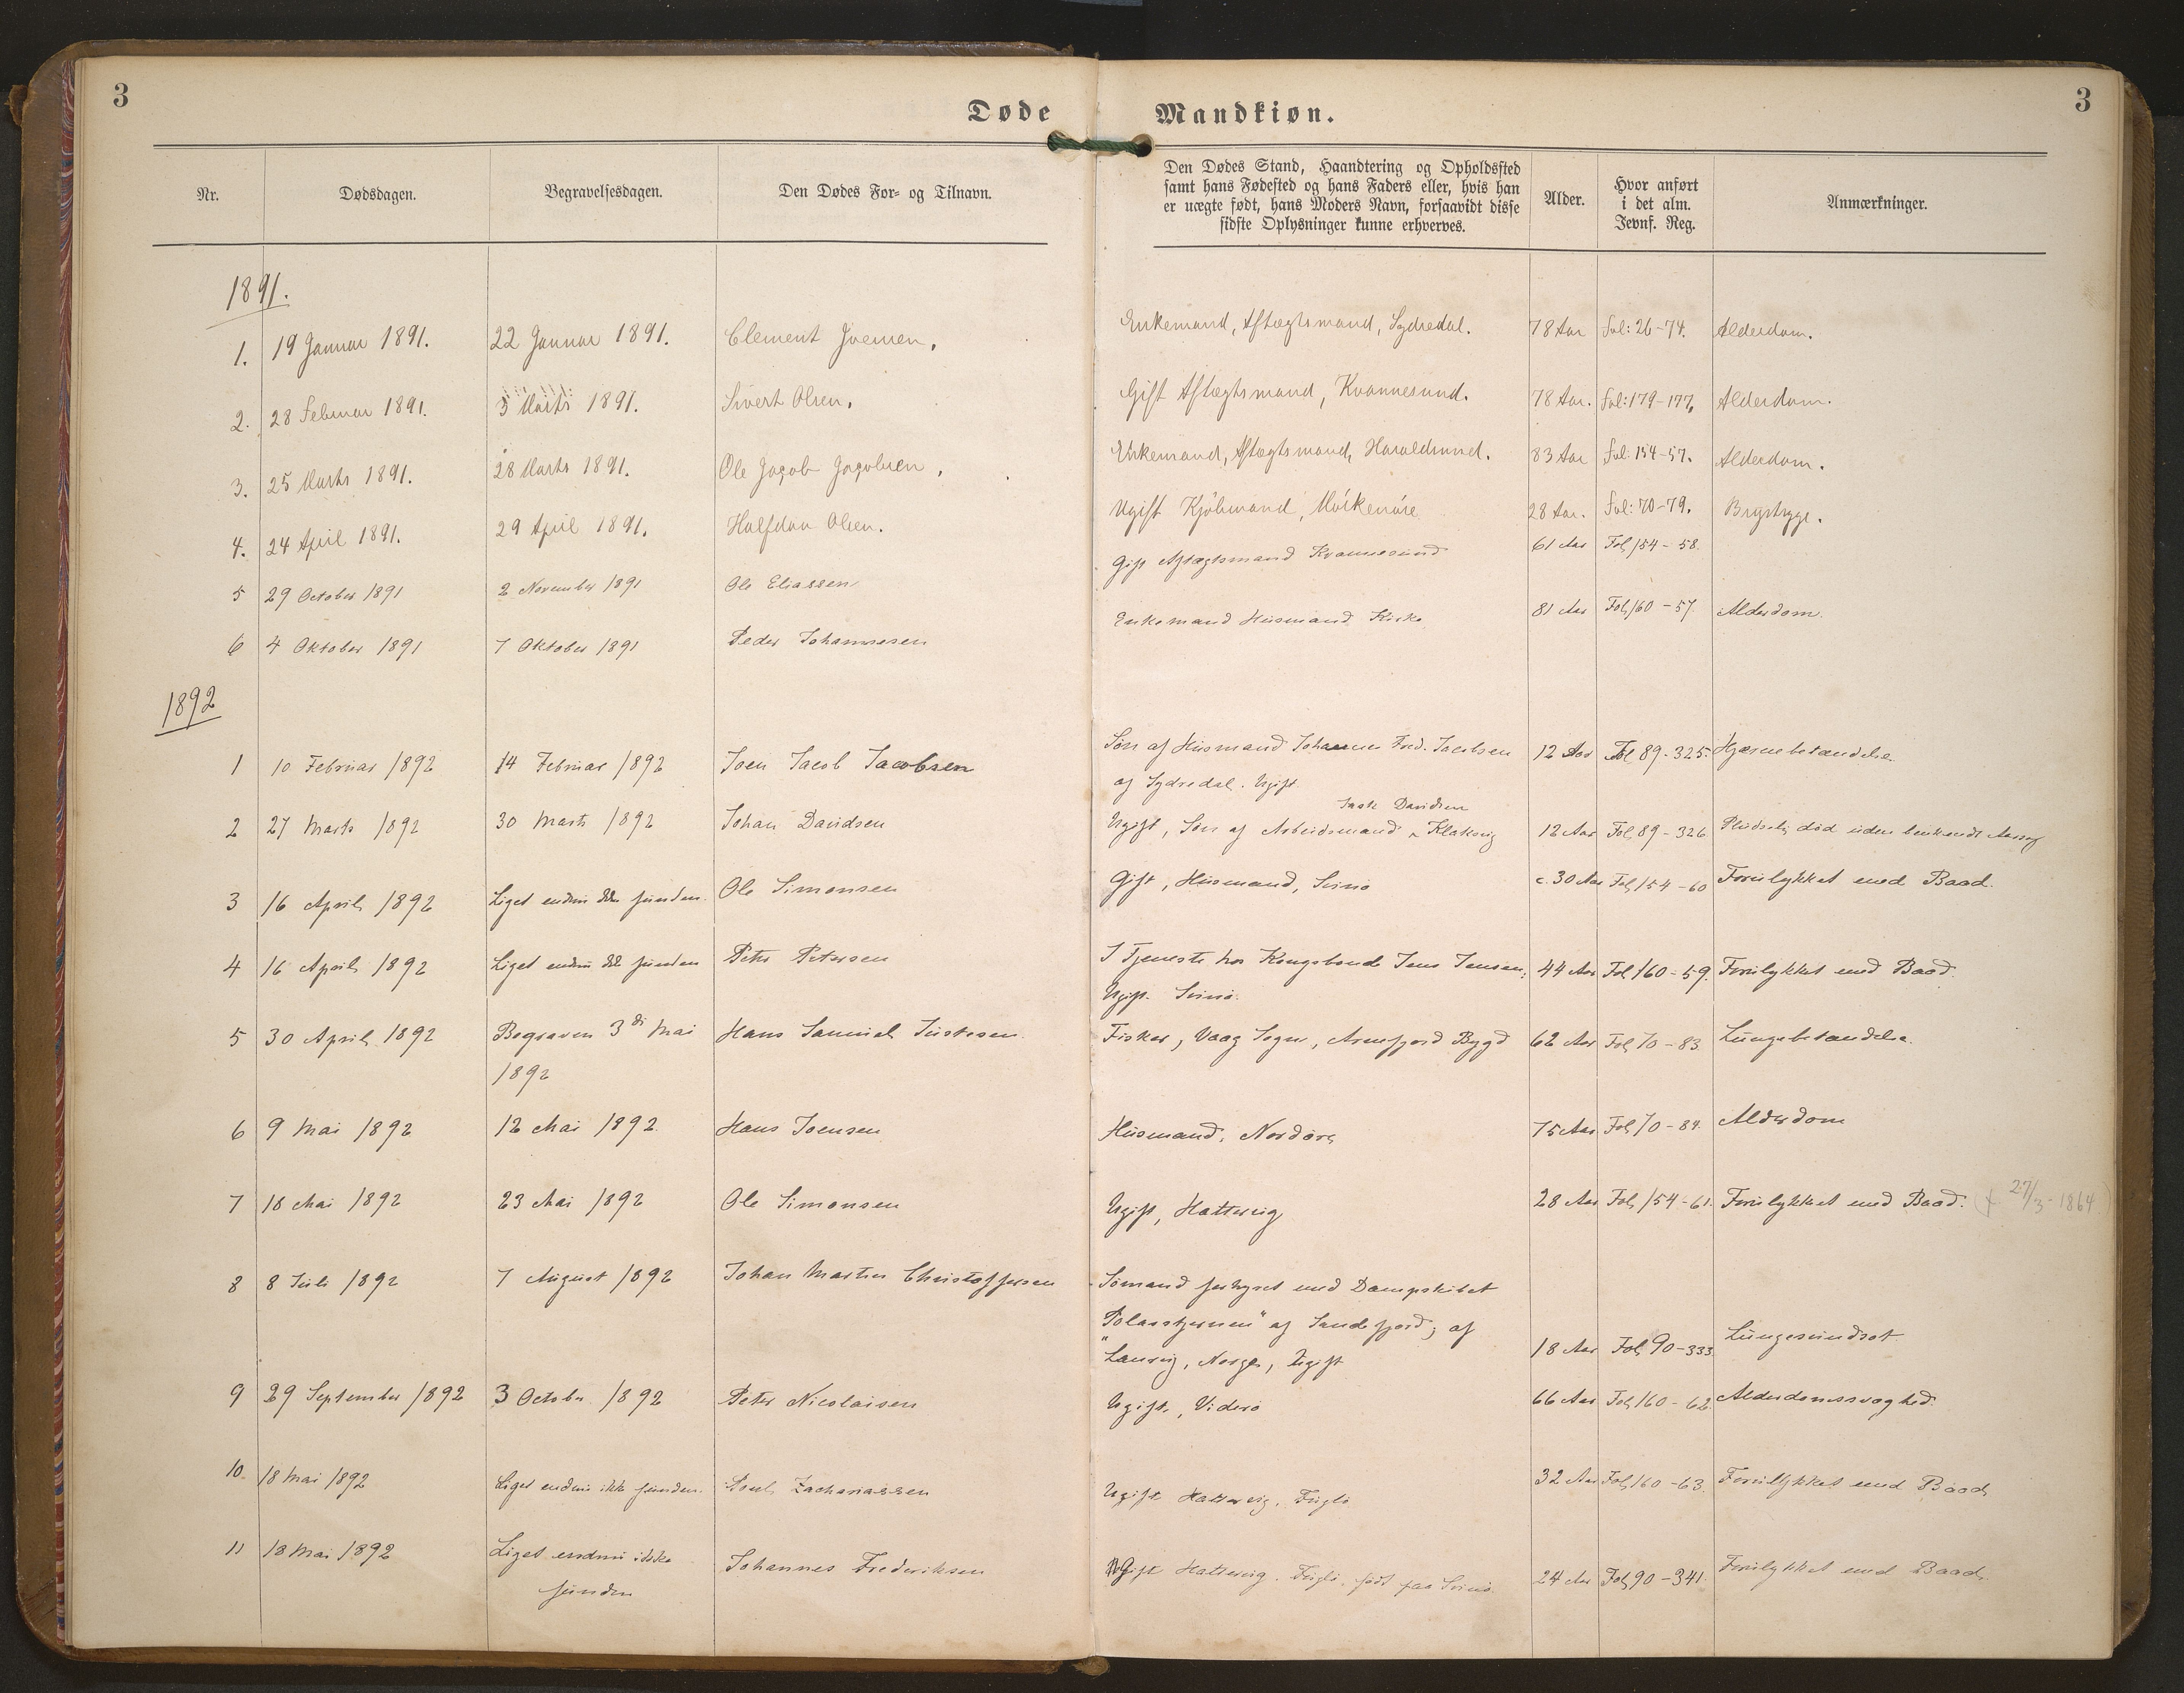 3
3
Døde Mandkiøn.
Nr. Dødsdagen. Begravelsesdagen. Den Dødes For- og Tilnavn. Den Dødes Stand, Haandtering og Opholdssted
samt hans Fødested og hans Faders eller, hvis han
er uægte født, hans Moders Navn, forsaavidt disse
sidste Oplysninger kunne erhverves. Alder. Hvor anført
i det alm.
Jevnf. Reg. Anmærkninger.
1891.
1. 19 Januar 1891. 22 Januar 1891. Clement Joensen. Enkemand, Aftægtsmand, Sydredal. 78 Aar Fol: 26-74. Alderdom.
2. 28 Februar 1891. 3 Marts 1891. Sivert Olsen. Gift Aftægtsmand, Kvannesund. 78 Aar. Fol: 179-177. Alderdom.
3. 25 Marts 1891. 28 Marts 1891. Ole Jacob Jacobsen. Enkemand, Aftægtsmand, Haraldsund. 83 Aar Fol: 154-57. Alderdom.
4. 24 April 1891. 29 April 1891. Halfdan Olsen. Ugift Kjöbmand, 28 Aar. Fol: 70-79. Brystsyge.
5 29 October 1891 2 November 1891 Ole Eliassen Gift Aftægtsmand Kvannesund 61 Aar Fol 154-58.
6 4 Oktober 1891 7 Oktober 1891 Peder Johannesen Enkemand Husmand Kirke 81 Aar Fol 160-57. Alderdom.
1892
1 10 Februar 1892 14 Februar 1892 Joen Jacob Jacobsen Søn af Husmand Johannes Fred. Jacobsen 12 Aar Fol 89-325. Hjærnebetændelse.
af Sydredal. Ugift.
Davidsen
2 27 Marts 1892 30 Marts 1892 Johan Davidsen Ugift, Søn af Arbeidsmand Klaksvig 12 Aar Fol 89-326 Pludselig død uden bekendt Aarsag
3 16 April 1892 Liget endnu ikke funden. Ole Simonsen Gift, Husmand, Svinö c. 30 Aar Fol 154-60 Forulykket med Baad.
4 16 April 1892 Liget endnu ikke funden Peter Petersen I Tjeneste hos Kongsbonde Jens Jensen; 44 Aar Fol 160-59. Forulykket med Baad.
Ugift. Svinö.
5 30 April 1892 Begraven 3di Mai Hans Samuel Justesen. Fisker, Vaag Sogn, Arnefjord Bygd 62 Aar Fol 70-83. Lungebetændelse.
1892
6 9 Mai 1892 12 Mai 1892. Hans Joensen Husmand, Nordöre 75 Aar Fol 70-84. Alderdom
7 18 Mai 1892 23 Mai 1892 Ole Simonsen Ugift, Hattervig 28 Aar Fol 154-61. Forulykket med Baad. 27/3-1864)
8 8 Juli 1892 7 August 1892 Johan Martin Christoffersen Sömand forhyret med Dampskibet
"Polarstjernen" af Sandefjord; af
Laurvig, Norge, Ugift 18 Aar Fol 90-333 Lungesvindsot
9 29 September 1892 3 October 1892 Peter Nicolaisen Ugift, Viderö 66 Aar Fol 160-62. Alderdomssvaghed.
10. 18 Mai 1892 Liget endnu ikke funden. Poul Zachariassen Ugift Hattervig, Fuglö 32 Aar Fol 160-63. Forulykket med Baad
11 18 Mai 1892 Liget endnu ikke Johannes Frederiksen Ugift Hattervig. Fuglö, født paa Svinö. 24 Aar Fol 90-341. Forulykket med Baad.
funden